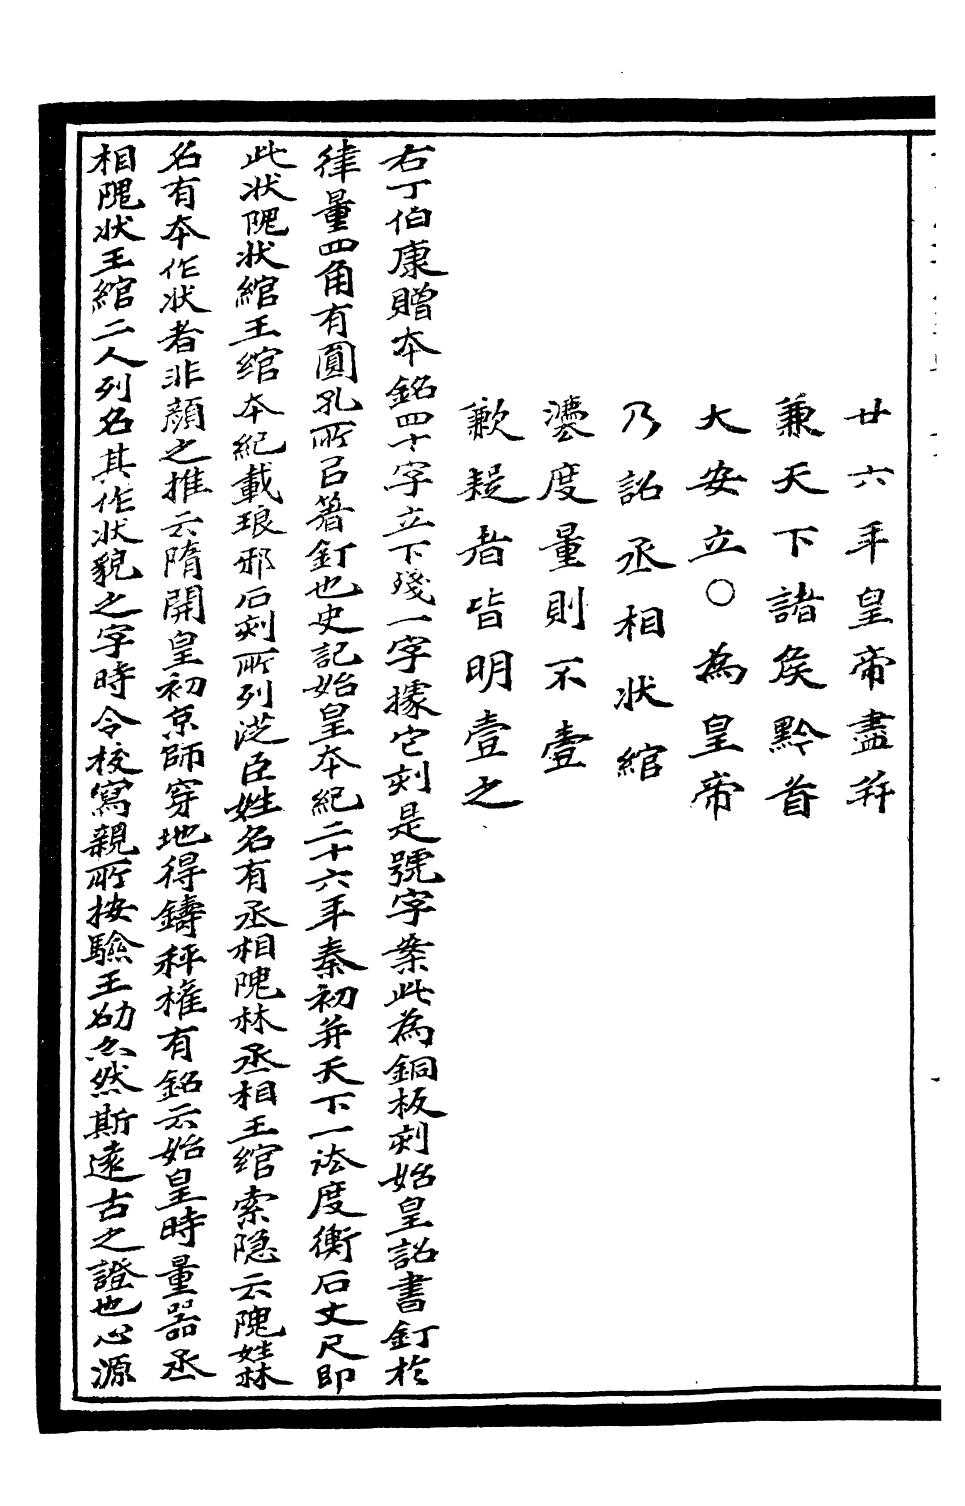 廿六年皇帝盡并
兼天下諸矦黔首
大安立〇為皇帝
乃詔丞相狀綰
灋度量則不壹
歉疑者皆明壹之
右丁伯康贈本銘四十字立下殘一字據它刻是號字案此為銅板刻始皇詔書釘於
律量四角有圓孔所㠯著釘也史記始皇本紀二十六年秦初并天下一法度衡石丈尺即
此狀隗狀綰王綰本紀載琅邪石刻所列從臣姓名有丞相隗林丞相王綰索隱云隗姓林
名有本作狀者非顏之推云隋開皇初京師穿地得鑄秤權有銘云始皇時量器丞
相隗狀王綰二人列名其作狀貌之字時令校寫親所按驗王劭亦然斯遠古之證也心源